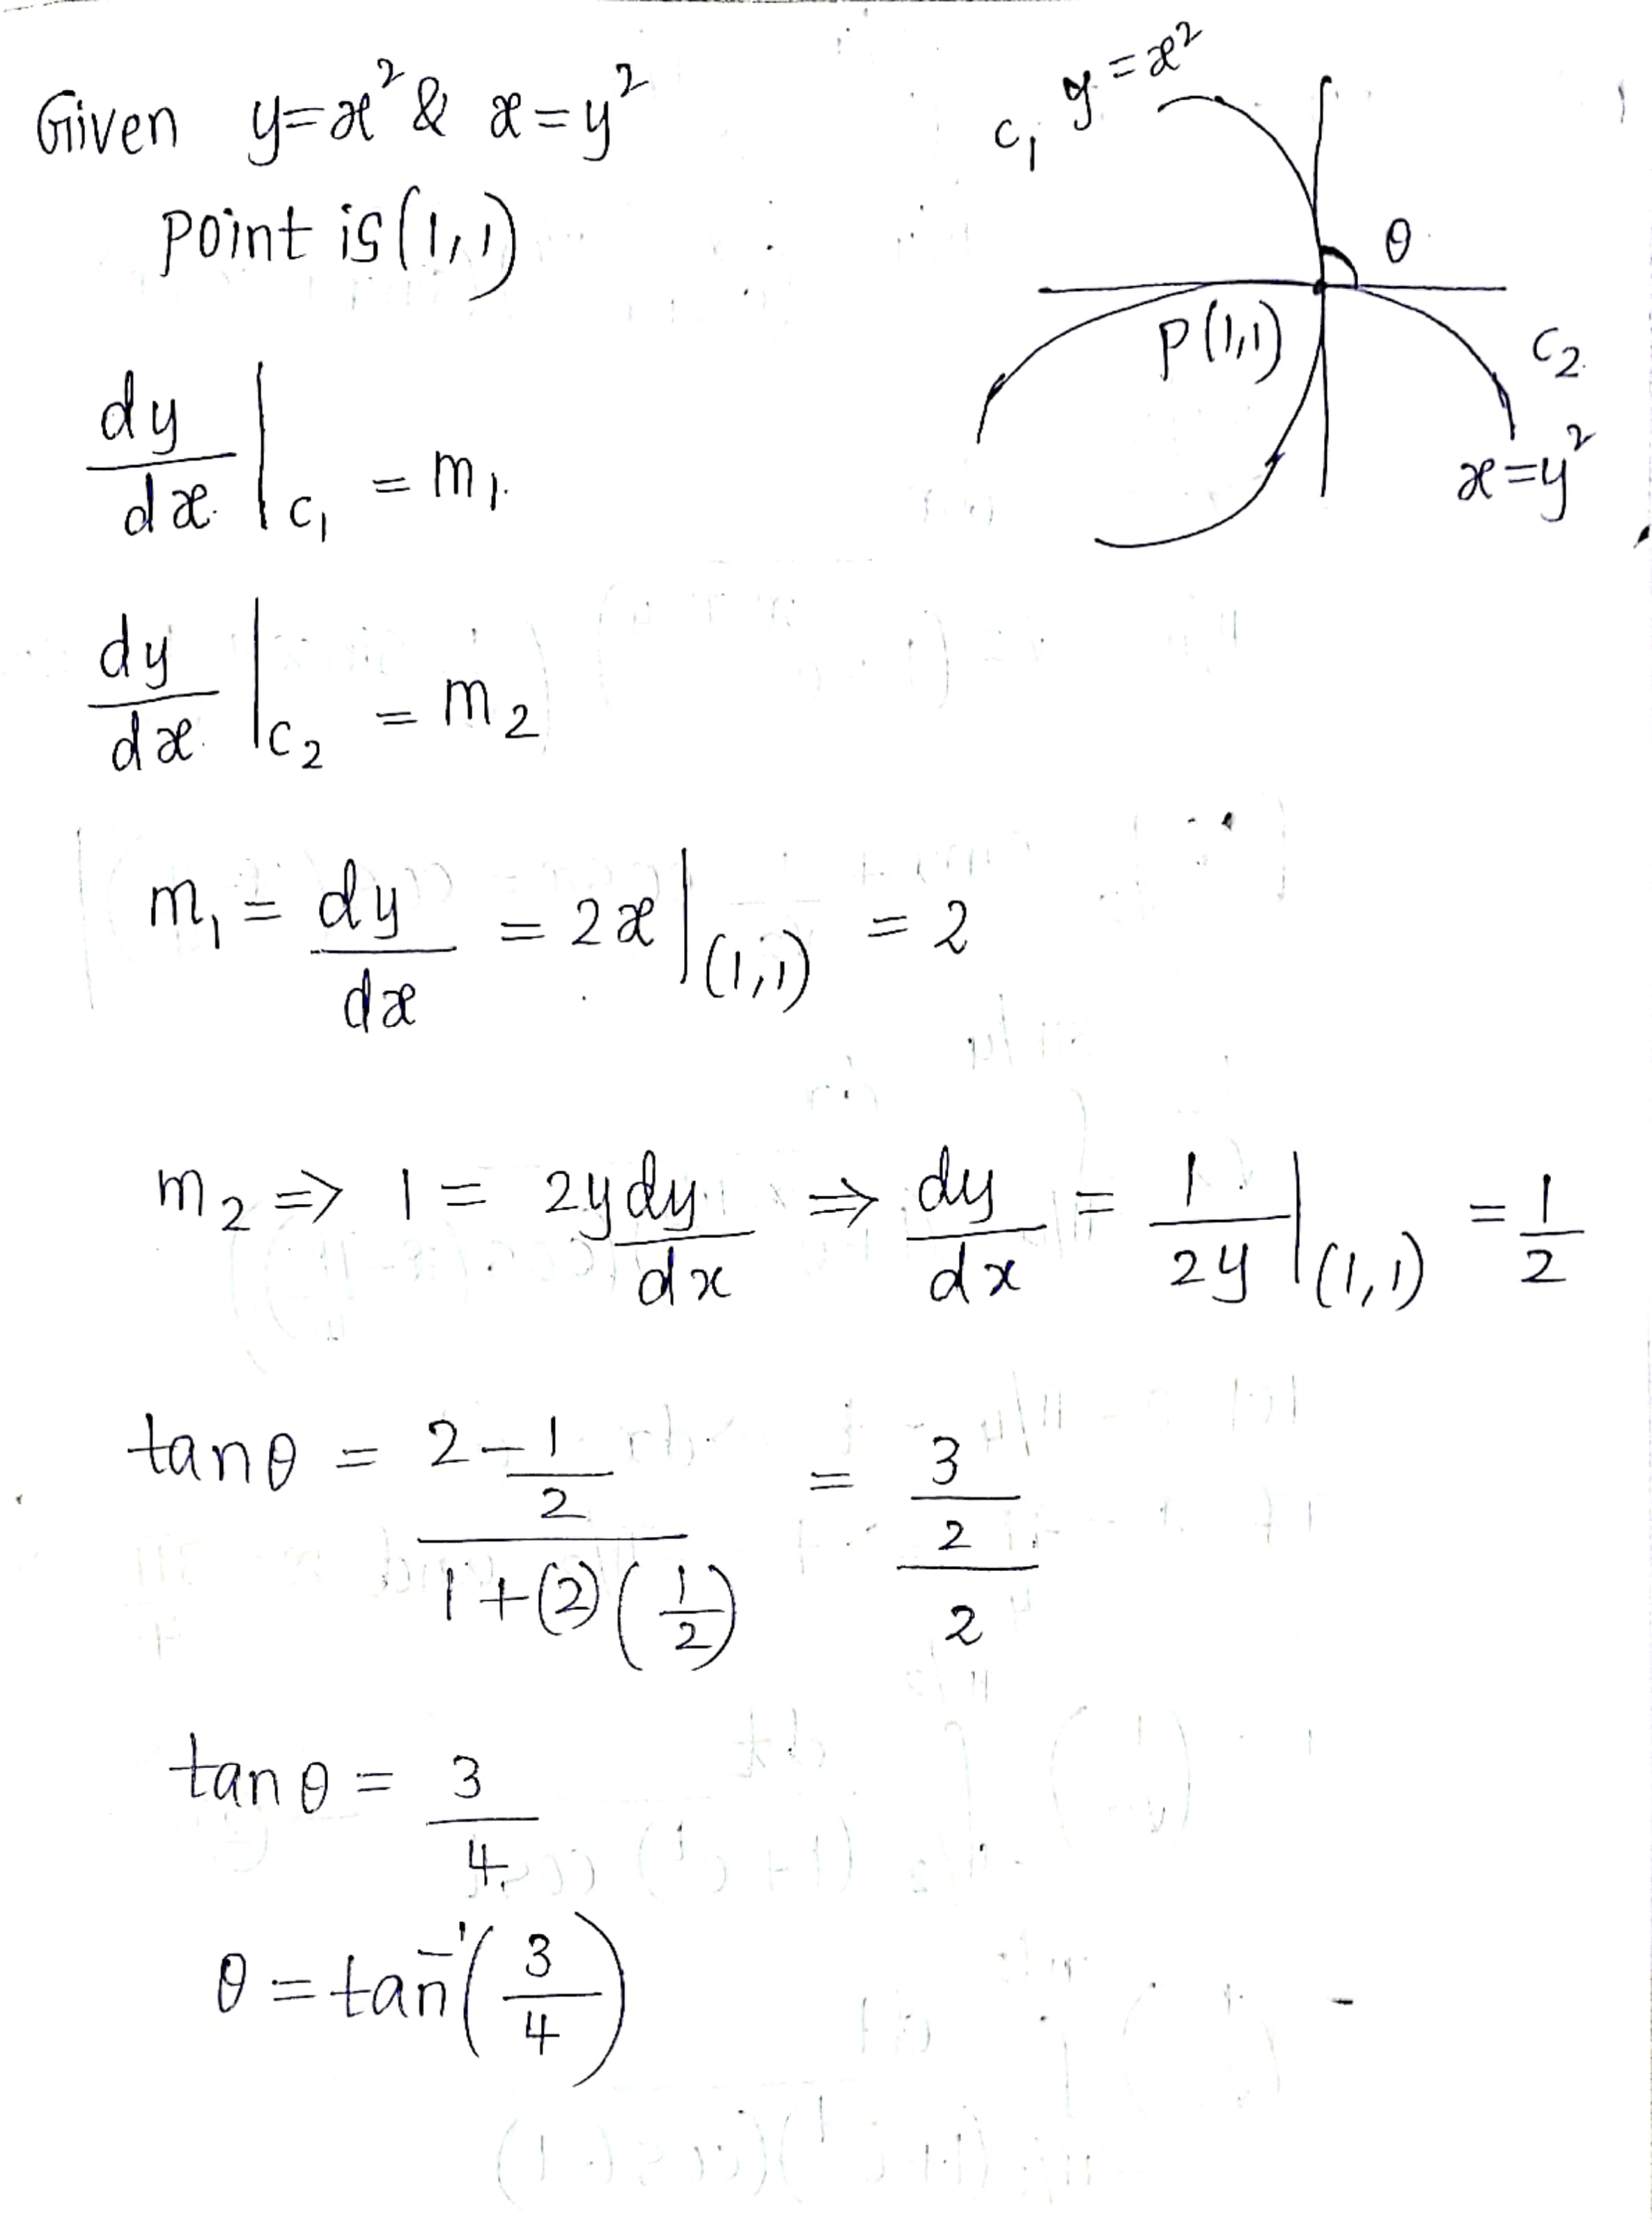 Given y=x² & x=y²
point is (1,1)
C₁ y=x²
θ
P(1,1)
C₂
x=y²
dy/dx |C₁ = m₁
dy/dx |C₂ = m₂
m₁ = dy/dx = 2x|(1,1) = 2
m₂ ⇒ 1 = 2y dy/dx ⇒ dy/dx = 1/2y |(1,1) = 1/2
tanθ = (2-1/2)/(1+(2)(1/2)) = (3/2)/2
tanθ = 3/4
θ = tan⁻¹(3/4)